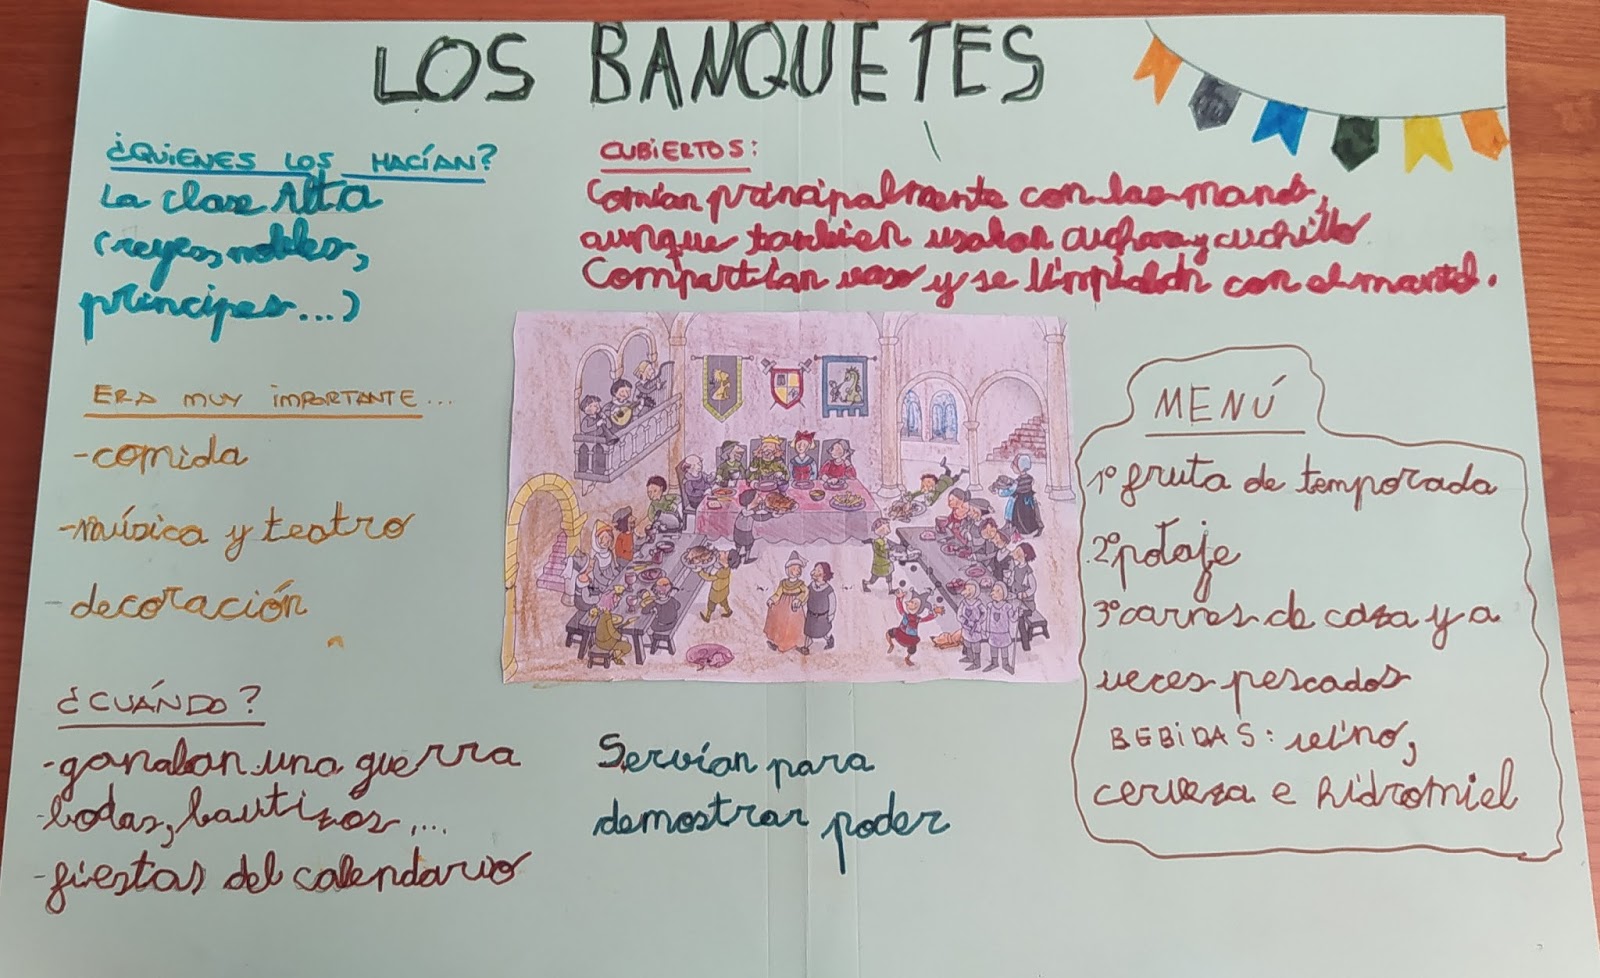 LOS BANQUETES
¿QUIENES LOS HACÍAN?
La clase Alta
(reyes, nobles,
príncipes...)
CUBIERTOS:
Comían principalmente con las manos,
aunque también usaban cuchara y cuchillo
Compartían vaso y se limpiaban con el mantel.
ERA MUY IMPORTANTE...
-comida
-música y teatro
-decoración
¿CUÁNDO?
-ganaban una guerra
-bodas, bautizos....
-fiestas del calendario
Servían para
demostrar poder
MENÚ
1º fruta de temporada
2º potaje
3º carnes de caza y a
veces pescados
BEBIDAS: vino,
cerveza e hidromiel